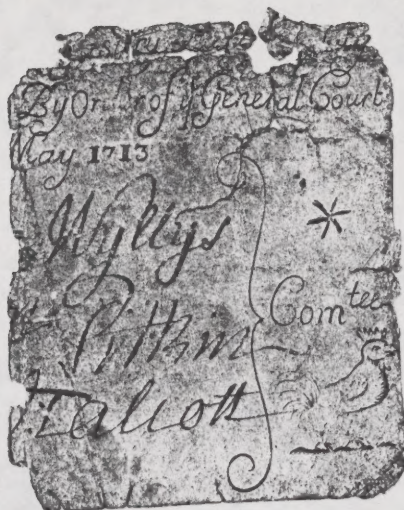 By Order of yͤ General Court
May 1713
Wyllys
Pitkin
Talcott
Comtee